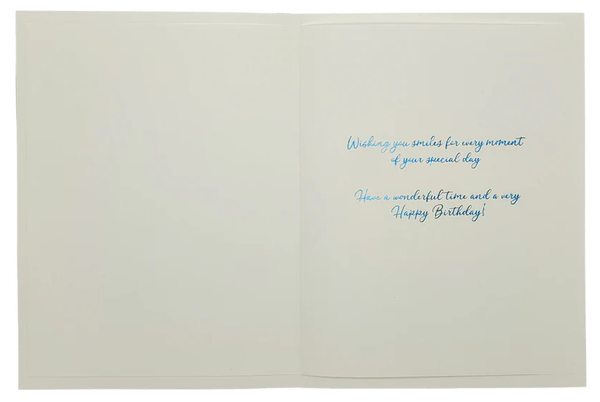 Wishing you smiles for every moment
of your special day
Have a wonderful time and a very
Happy Birthday!